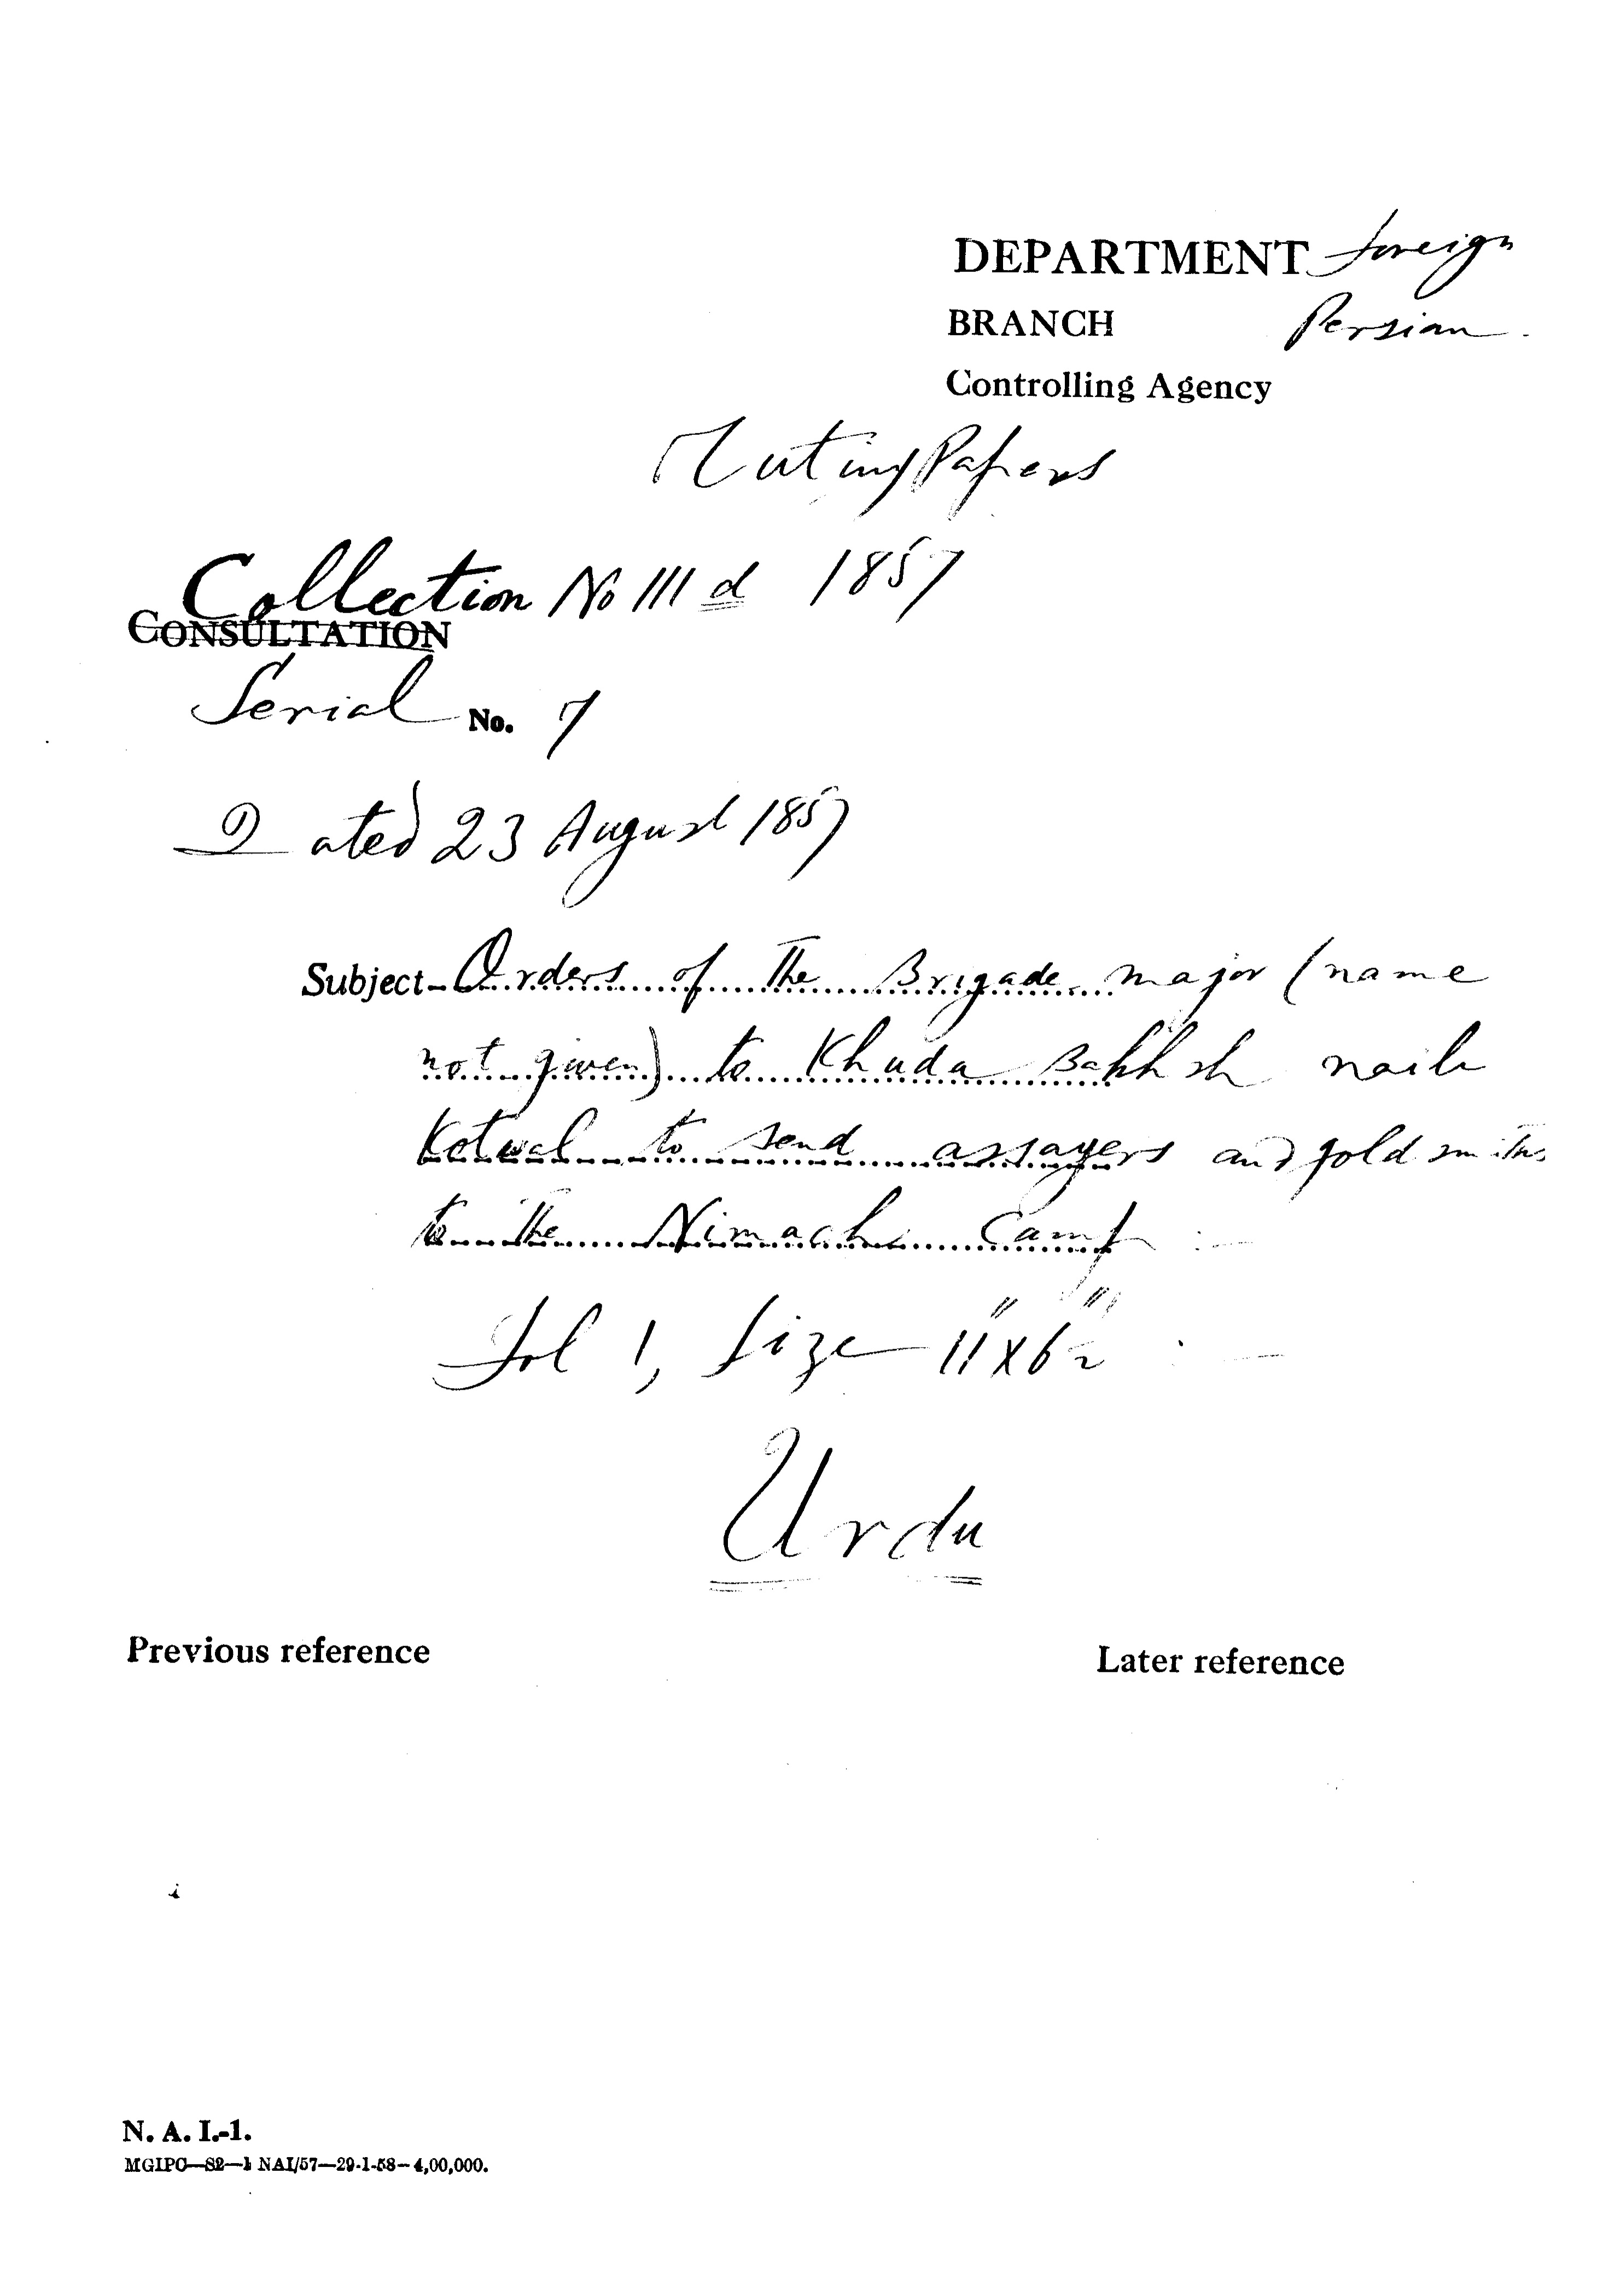 DEPARTMENT Foreign
BRANCH Persian.
Controlling Agency
Mutiny Papers
Collection No III d 1857
CONSULTATION
Serial No. 7
Dated 23 August 1857
Subject- Orders of the Brigade major (name
not given) to Khuda Bakhsh naib
Kotwal to send assayers and gold smiths
to the Nimach Camp :—
Fol 1, Size 11" x 6"
Urdu
Previous reference
Later reference
N. A. I.-1.
MGIPC—S2—1 NAI/57—29-1-58—4,00,000.